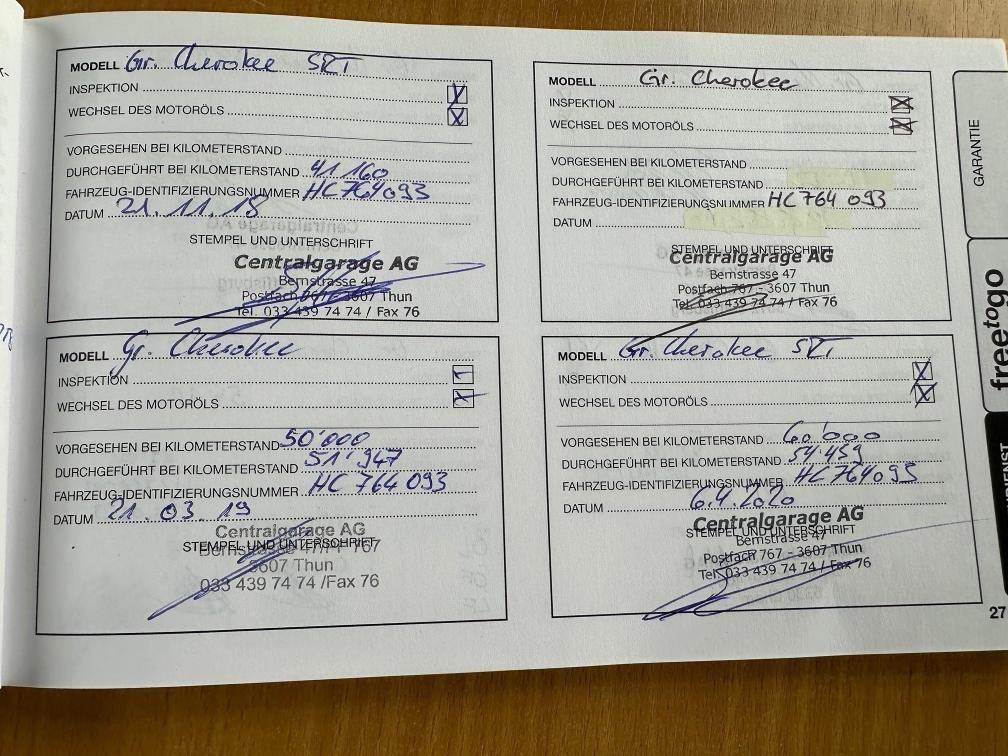 MODELL Gr. Cherokee SRT
INSPEKTION
WECHSEL DES MOTORÖLS
VORGESEHEN BEI KILOMETERSTAND
DURCHGEFÜHRT BEI KILOMETERSTAND 41'160
FAHRZEUG-IDENTIFIZIERUNGSNUMMER HC764093
DATUM 21.11.18
STEMPEL UND UNTERSCHRIFT
Centralgarage AG
Bernstrasse 47
Postfach 767 - 3607 Thun
Tel. 033 439 74 74 / Fax 76
MODELL Gr. Cherokee
INSPEKTION
WECHSEL DES MOTORÖLS
VORGESEHEN BEI KILOMETERSTAND
DURCHGEFÜHRT BEI KILOMETERSTAND
FAHRZEUG-IDENTIFIZIERUNGSNUMMER HC764 093
DATUM
STEMPEL UND UNTERSCHRIFT
Centralgarage AG
Bernstrasse 47
Postfach 767 - 3607 Thun
Tel. 033 439 74 74 / Fax 76
MODELL Gr. Cherokee
INSPEKTION
WECHSEL DES MOTORÖLS
VORGESEHEN BEI KILOMETERSTAND 50'000
DURCHGEFÜHRT BEI KILOMETERSTAND 51'947
FAHRZEUG-IDENTIFIZIERUNGSNUMMER HC 764 093
DATUM 21.03.19
Centralgarage AG
STEMPEL UND UNTERSCHRIFT
Bernstrasse 767
3607 Thun
033 439 74 74 /Fax 76
MODELL Gr. Cherokee SRT
INSPEKTION
WECHSEL DES MOTORÖLS
VORGESEHEN BEI KILOMETERSTAND 60'000
DURCHGEFÜHRT BEI KILOMETERSTAND 54'459
FAHRZEUG-IDENTIFIZIERUNGSNUMMER HC764093
DATUM 6.4.2020
Centralgarage AG
STEMPEL UND UNTERSCHRIFT
Bernstrasse 47
Postfach 767 - 3607 Thun
Tel. 033 439 74 74 / Fax 76
GARANTIE
freetogo
27